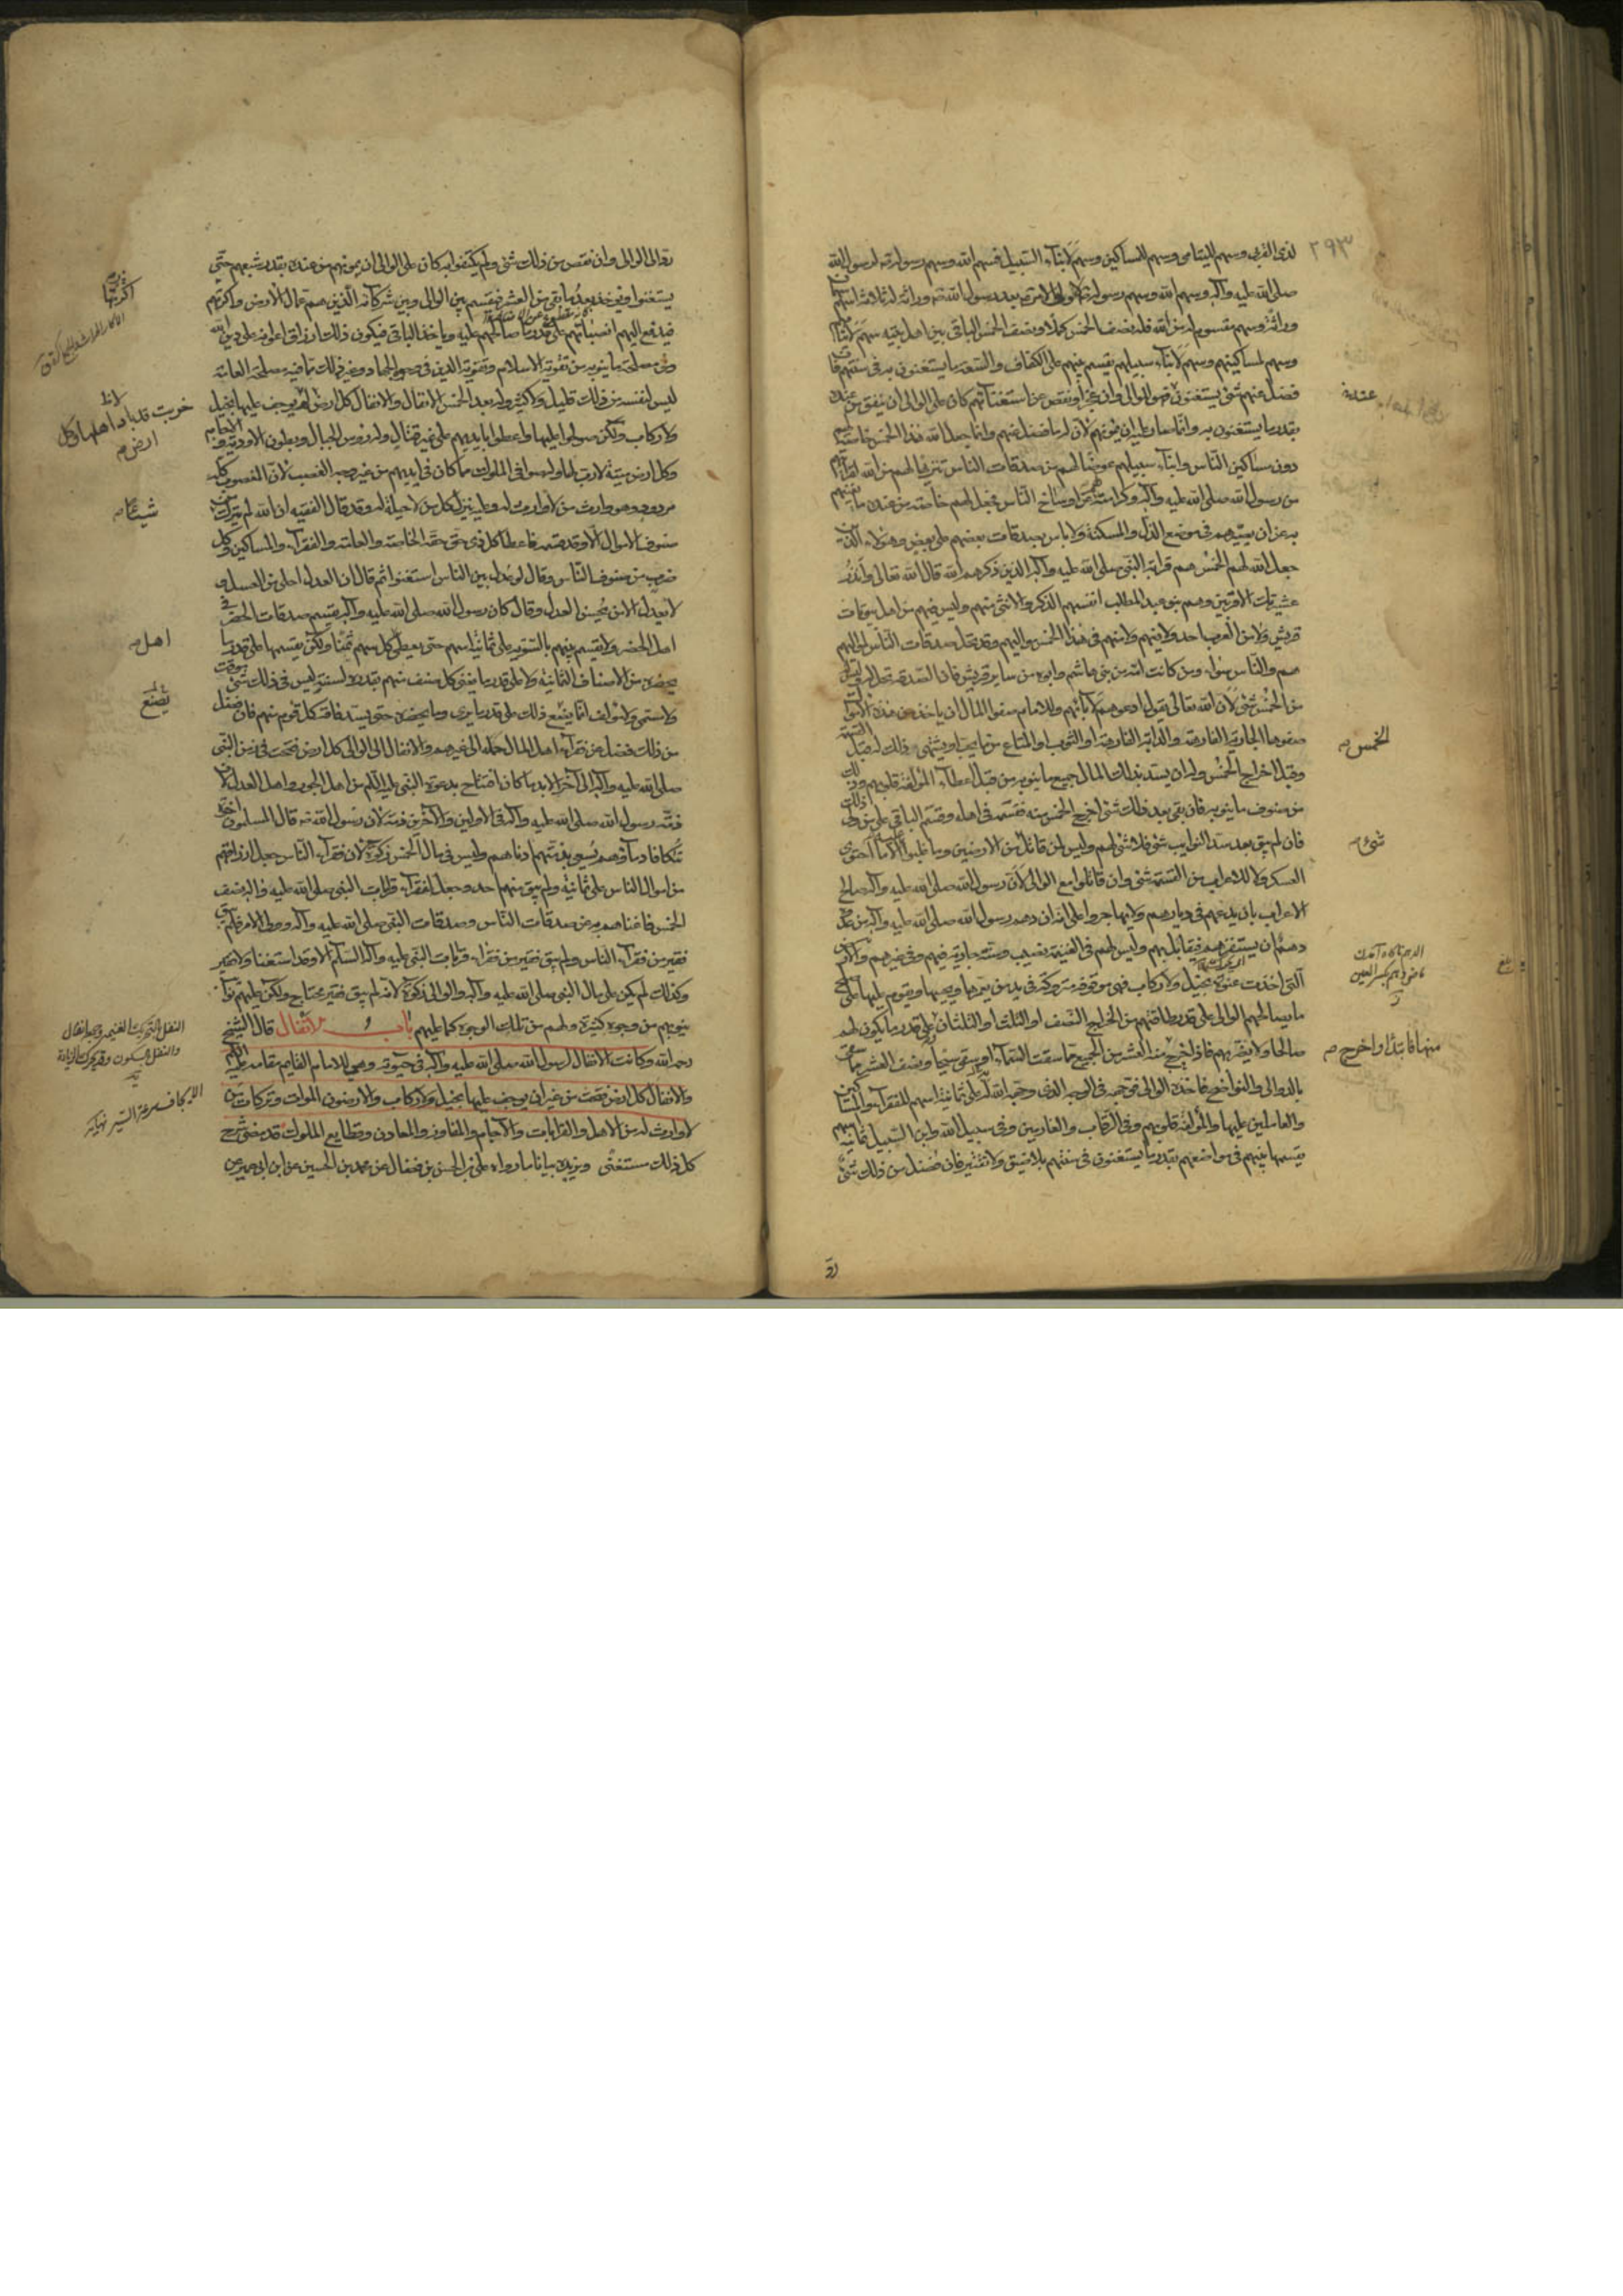 ٢٩٣
لذى القربى وسهم لليتامى وسهم للمساكين وسهم لابناء السبيل فسهم الله وسهم رسوله لرسول الله
صلى الله عليه وآله وسهم الله وسهم رسوله لاولى الامر بعد رسول الله وراثة له ثلاثة اسهم
وراثة وسهم مقسوم له من الله فله نصف الخمس كملا ونصف الخمس الباقى بين اهل بيته سهم لايتامهم
وسهم لمساكينهم وسهم لابناء سبيلهم يقسم بينهم على الكفاف والسعة ما يستغنون به فى سنتهم فان
فضل عنهم شئ يستغنون فهو للوالى وان عجز او نقص عن استغنائهم كان على الوالى ان ينفق من عنده
بقدر ما يستغنون به وانما صار عليه ان يمونهم لان له ما فضل عنهم وانما جعل الله هذا الخمس خاصة لهم
دون مساكين الناس وابناء سبيلهم عوضا لهم من صدقات الناس تنزيها لهم من الله لقرابتهم
من رسول الله صلى الله عليه وآله وكرامة لهم عن اوساخ الناس فجعل لهم خاصة من عنده ما يغنيهم
به عن ان يصيرهم فى موضع الذل والمسكنة ولا باس بصدقات بعضهم على بعض وهؤلاء الذين
جعل الله لهم الخمس هم قرابة النبى صلى الله عليه وآله الذين ذكرهم الله قال الله تعالى وانذر
عشيرتك الاقربين وهم بنو عبد المطلب انفسهم الذكر والانثى منهم وليس فيهم من اهل بيوتات
قريش ولا من العرب احد ولا فيهم ولا منهم فى هذا الخمس مواليهم وقد تحل صدقات الناس لمواليهم
هم والناس سواء ومن كانت امه من بنى هاشم وابوه من ساير قريش فان الصدقة تحل له وليس له
من الخمس شئ لان الله تعالى يقول ادعوهم لآبائهم وللامام صفو المال ان ياخذ من هذه الاموال
صفوها الجارية الفارهة والدابة الفارهة او الثوب او المتاع مما يحب او يشتهى فذلك له قبل القسمة
وقبل اخراج الخمس وله ان يسد بذلك المال جميع ما ينوبه من قبل اعطاء المؤلفة قلوبهم وغير ذلك
من صنوف ما ينوبه فان بقى بعد ذلك شئ اخرج الخمس منه فقسمه فى اهله وقسم الباقى على من ولى ذلك
فان لم يبق بعد سد النوايب شئ فلا شئ لهم وليس لمن قاتل من الارضين وما غلبوا عليه الا ما احتوى
العسكر ولا للاعراب من القسمة شئ وان قاتلوا مع الوالى لان رسول الله صلى الله عليه وآله صالح
الاعراب بان يدعهم فى ديارهم ولا يهاجروا على انه ان دهم رسول الله صلى الله عليه وآله من عدوه
دهم ان يستفزهم فيقاتل بهم وليس لهم فى الغنيمة نصيب وسنته جارية فيهم وفى غيرهم والارض
التى اخذت عنوة بخيل ولا ركاب فهى موقوفة متروكة فى يد من يعمرها ويحييها ويقوم عليها على
ما يصالحهم الوالى على قدر طاقتهم من الخراج النصف او الثلث او الثلثان وعلى قدر ما يكون لهم
صالحا ولا يضر بهم فاذا خرج منها العشر من الجميع مما سقت السماء او سقى سيحا ونصف العشر مما سقى
بالدوالى والنواضح فاخذه الوالى فوجهه فى الوجه الذى وجه الله له على ثمانية اسهم للفقراء والمساكين
والعاملين عليها والمؤلفة قلوبهم وفى الرقاب والغارمين وفى سبيل الله وابن السبيل ثمانية اسهم
يقسمها بينهم فى مواضعهم بقدر ما يستغنون فى سنتهم بلا ضيق ولا تقتير فان فضل من ذلك شئ
عنده
الخمس م
شئ م
منها فابتدا واخرج م
رد الى الوالى وان نقص من ذلك شئ ولم يكتفوا به كان على الوالى ان يمونهم من عنده بقدر شبعهم حتى
يستغنوا ويوخذ بعد ما بقى من العشر فيقسم بين الوالى وبين شركائه الذين هم عمال الارض واكرتها
فيدفع اليهم انصباءهم على قدر ما صالحهم عليه وياخذ الباقى فيكون ذلك ارزاق اعوانه على دين الله
وفى مصلحة ما ينوبه من تقوية الاسلام وتقوية الدين فى وجوه الجهاد وغير ذلك مما فيه مصلحة العامة
ليس لنفسه من ذلك قليل ولا كثير وله بعد الخمس الانفال والانفال كل ارض لم يوجف عليها بخيل
ولا ركاب ولكن صولحوا عليها واعطوا بايديهم على غير قتال وله رؤس الجبال وبطون الاودية والاجام
وكل ارض ميتة لا رب لها وله صوافى الملوك مما كان فى ايديهم من غير وجه الغصب لان المغصوب كله
مردود وهو وارث من لا وارث له وعليه ينزل كل من لا حيلة له وقد قال الفقيه ان الله لم يترك من
صنوف الاموال الا وقد قسمه فاعطا كل ذى حق حقه الخاصة والعامة والفقراء والمساكين وكل
ضرب من صنوف الناس وقال لو عدل بين الناس استغنوا ثم قال ان العدل احلى من العسل و
لا يعدل الا من يحسن العدل وقال كان رسول الله صلى الله عليه وآله يقسم صدقات الحضر فى
اهل الحضر ولا يقسم بينهم بالسوية على ثمانية اسهم حتى يعطى كل سهم ثمنا ولكن يقسمها على قدر ما
يحضره من الاصناف الثمانية وعلى قدر ما يغنى كل صنف منهم بقدره لسنته ليس فى ذلك شئ موقت
ولا مسمى ولا مؤلف انما يصنع ذلك على قدر ما يرى وما يحضره حتى يسد فاقة كل قوم منهم فان فضل
من ذلك فضل عن فقراء اهل المال حمله الى غيرهم والانفال الى الوالى كل ارض فتحت فى زمن النبى
صلى الله عليه وآله الى آخر الابد ما كان افتتاح بدعوة النبى عليه السلم من اهل الجور واهل العدل لان
ذمة رسول الله صلى الله عليه وآله فى الاولين والآخرين ذمة لان رسول الله قال المسلمون اخوة
تتكافا دماؤهم يسعى بذمتهم ادناهم وليس فى مال الخمس زكوة لان فقراء الناس جعل ارزاقهم
من اموال الناس على ثمانية ولم يبق منهم احد وجعل لفقراء قرابات النبى صلى الله عليه وآله نصف
الخمس فاغناهم به عن صدقات الناس وصدقات النبى صلى الله عليه وآله وولى الامر فلم يبق
فقير من فقراء الناس ولم يبق فقير من فقراء قرابات النبى عليه وآله السلم الا وقد استغنا ولا فقير
وكذلك لم يكن على مال النبى صلى الله عليه وآله والوالى زكوة لانه لم يبق فقير محتاج ولكن عليهم نوائب
ينوبهم من وجوه كثيرة ولهم من تلك الوجوه كما عليهم باب الانفال قال الشيخ
رحمه الله وكانت الانفال لرسول الله صلى الله عليه وآله فى حيوته وهى للامام القايم مقامه
والانفال كل ارض فتحت من غير ان يوجف عليها بخيل ولا ركاب والارضون الموات وتركات من
لا وارث له من الاهل والقرابات والآجام والمفاوز والمعادن وقطايع الملوك قد مضى شرح
كل ذلك مستغنى ويزيده بيانا ما رواه على بن الحسن بن فضال عن محمد بن الحسين عن ابن ابى عمير عن
اكرتها
خربت قد باد اهلها وكل
ارض م
شيئا م
اهل م
يصنع